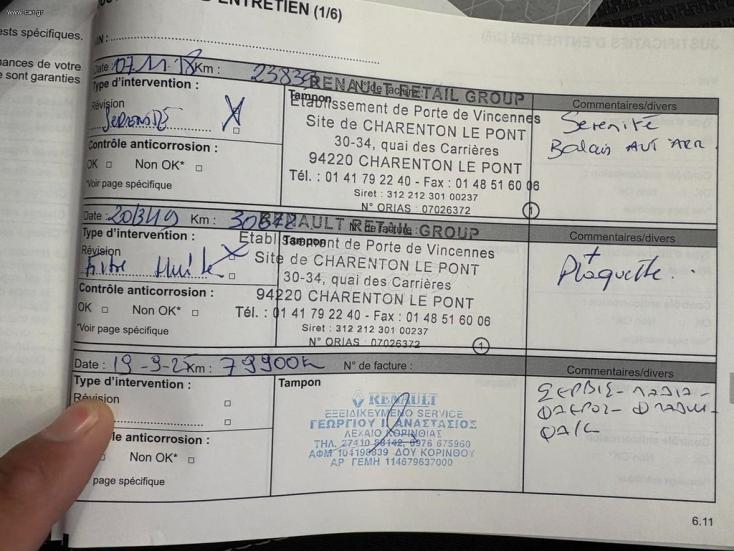 www.car.gr
D'ENTRETIEN (1/6)
ests spécifiques.
ances de votre
e sont garanties
Date 07 11 18 Km : N° de facture
Type d'intervention :
Révision
SERENITÉ
Contrôle anticorrosion :
OK Non OK*
*Voir page spécifique
Tampon
RENAULT RETAIL GROUP
Etablissement de Porte de Vincennes
Site de CHARENTON LE PONT
30-34, quai des Carrières
94220 CHARENTON LE PONT
Tél. : 01 41 79 22 40 - Fax : 01 48 51 60 06
Siret : 312 212 301 00237
N° ORIAS : 07026372
1
Commentaires/divers
Serenité
Balais AV
Date : 20/3/19 Km : N° de facture
Type d'intervention :
Révision
Filtre Huile
Contrôle anticorrosion :
OK Non OK*
*Voir page spécifique
Tampon
RENAULT RETAIL GROUP
Etablissement de Porte de Vincennes
Site de CHARENTON LE PONT
30-34, quai des Carrières
94220 CHARENTON LE PONT
Tél. : 01 41 79 22 40 - Fax : 01 48 51 60 06
Siret : 312 212 301 00237
N° ORIAS : 07026372
1
Commentaires/divers
+
Plaquette..
Date : Km : 79900 N° de facture :
Type d'intervention :
Révision
ôle anticorrosion :
Non OK*
page spécifique
Tampon
RENAULT
ΕΞΕΙΔΙΚΕΥΜΕΝΟ SERVICE
ΓΕΩΡΓΙΟΥ ΑΝΑΣΤΑΣΙΟΣ
ΛΕΧΑΙΟ ΚΟΡΙΝΘΙΑΣ
ΤΗΛ. 27410 6976 675960
ΑΦΜ ΔΟΥ ΚΟΡΙΝΘΟΥ
ΑΡ ΓΕΜΗ 114679637000
Commentaires/divers
ΣΕΡΒΙΣ- ΛΑΔΙΑ-
6.11